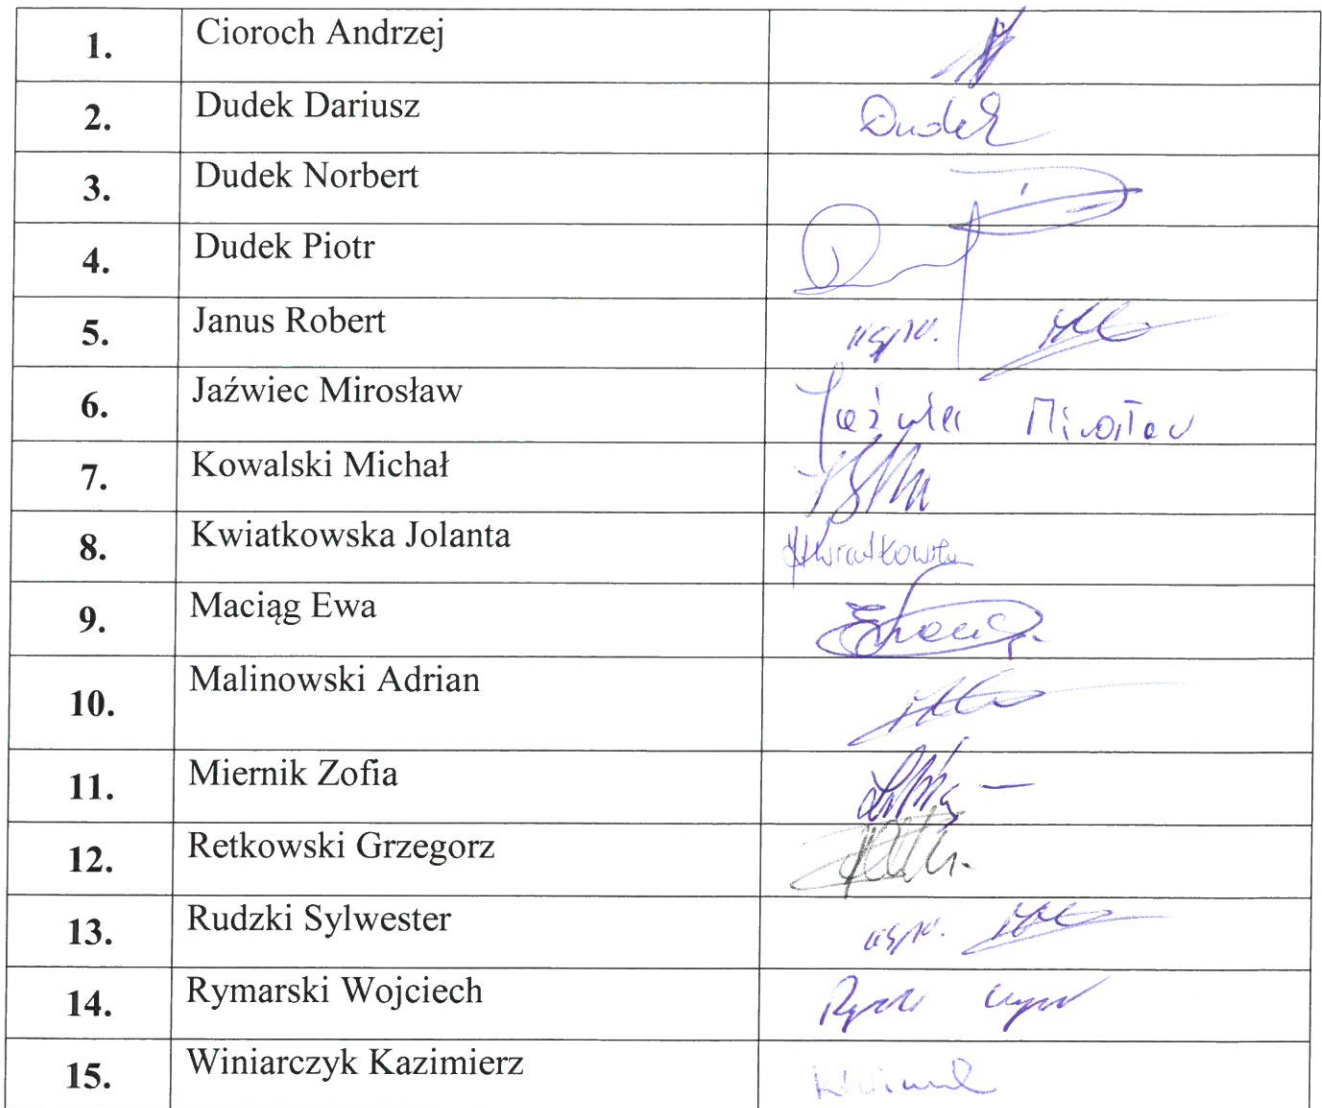 1. Cioroch Andrzej
2. Dudek Dariusz Dudek
3. Dudek Norbert
4. Dudek Piotr
5. Janus Robert uspr.
6. Jaźwiec Mirosław Jaźwiec Mirosław
7. Kowalski Michał
8. Kwiatkowska Jolanta Kwiatkowska
9. Maciąg Ewa
10. Malinowski Adrian
11. Miernik Zofia
12. Retkowski Grzegorz
13. Rudzki Sylwester uspr.
14. Rymarski Wojciech
15. Winiarczyk Kazimierz